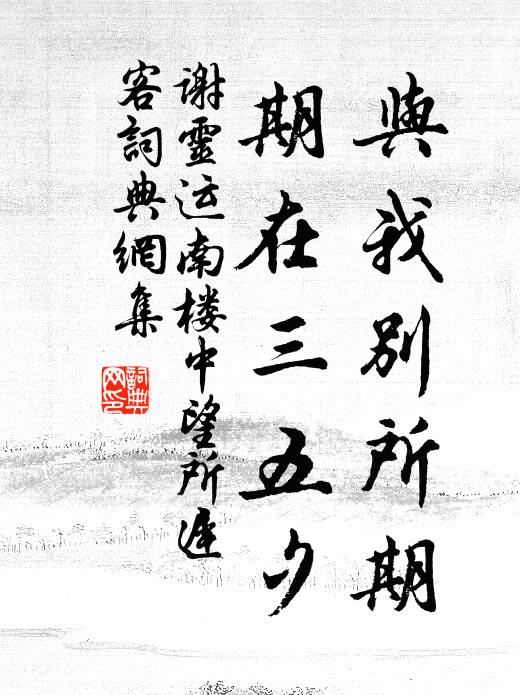 與我別所期
期在三五夕
謝靈运南楼中望所遲
客詞典網集
詞典
网印